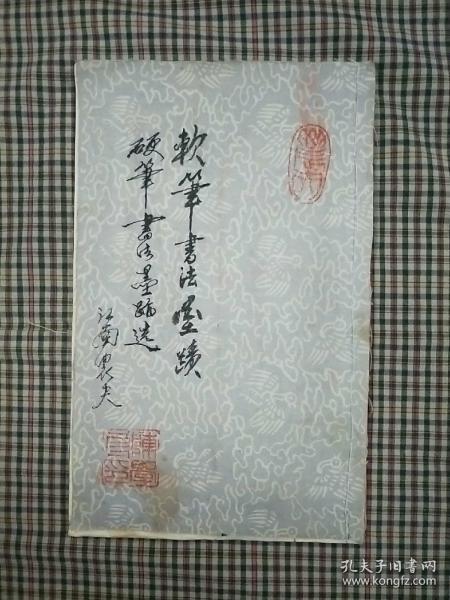 軟筆書法墨蹟
硬筆書法墨跡选
江南農夫
孔夫子旧书网
www.kongfz.com